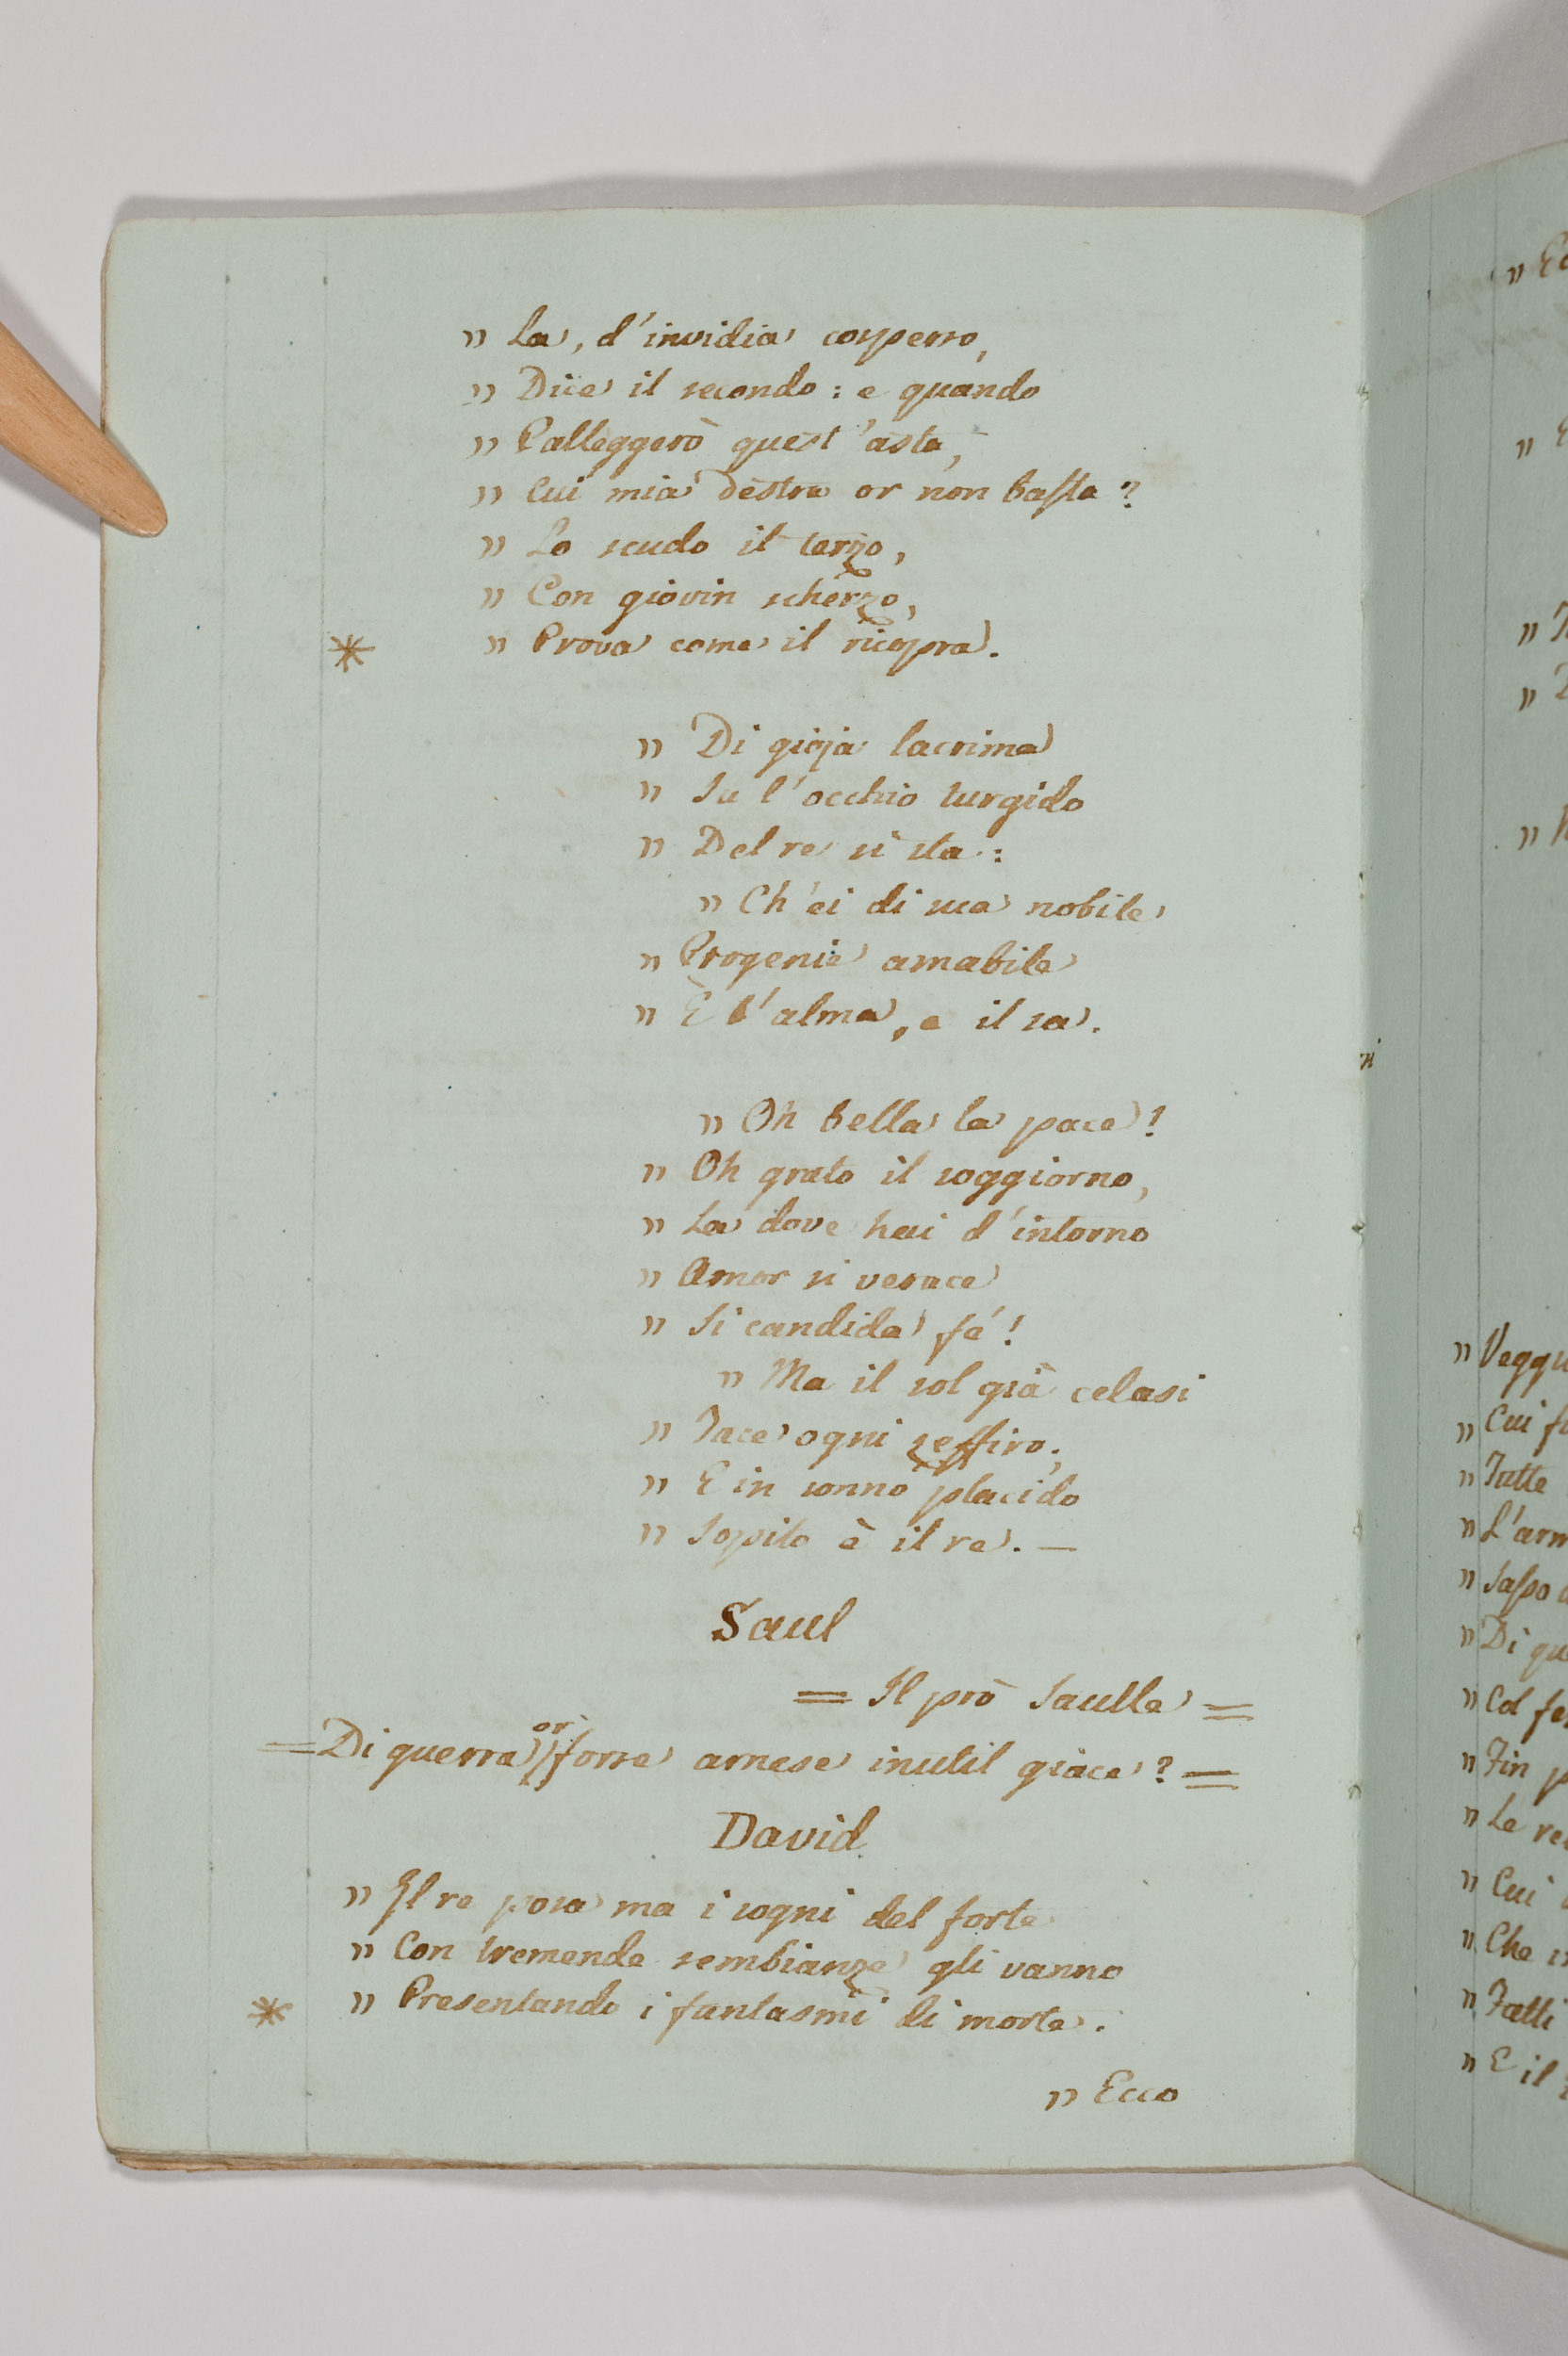 „ La, d'invidia cosperso,
„ Dice il secondo: e quando
„ Palleggerò quest'asta,
„ Cui mia destra or non basta?
„ Lo scudo il terzo,
„ Con giovin scherzo,
* „ Prova come il ricopra.
„ Di gioja lacrima
„ Su l'occhio turgido
„ Del re si sta:
„ Ch'ei di sua nobile
„ Progenie amabile
„ È l'alma, e il sa.
„ Oh bella la pace!
„ Oh grato il soggiorno,
„ La dove hai d'intorno
„ Amor si verace
„ Si candida fé!
„ Ma il sol già celasi
„ Tace ogni zeffiro;
„ E in sonno placido
„ Sopito è il re. —
Saul
= Il prò Saulle =
or
= Di guerra forse arnese inutil giace? =
David
„ Il re posa ma i sogni del forte
„ Con tremende sembianze gli vanno
* „ Presentando i fantasmi di morte.
„ Ecco
„ Cui
„ Tutte
„ L'arm
„ Saſso
„ Di qu
„ Col fe
„ Fin p
„ Le re
„ Cui
„ Che
„ Fatti
„ E il